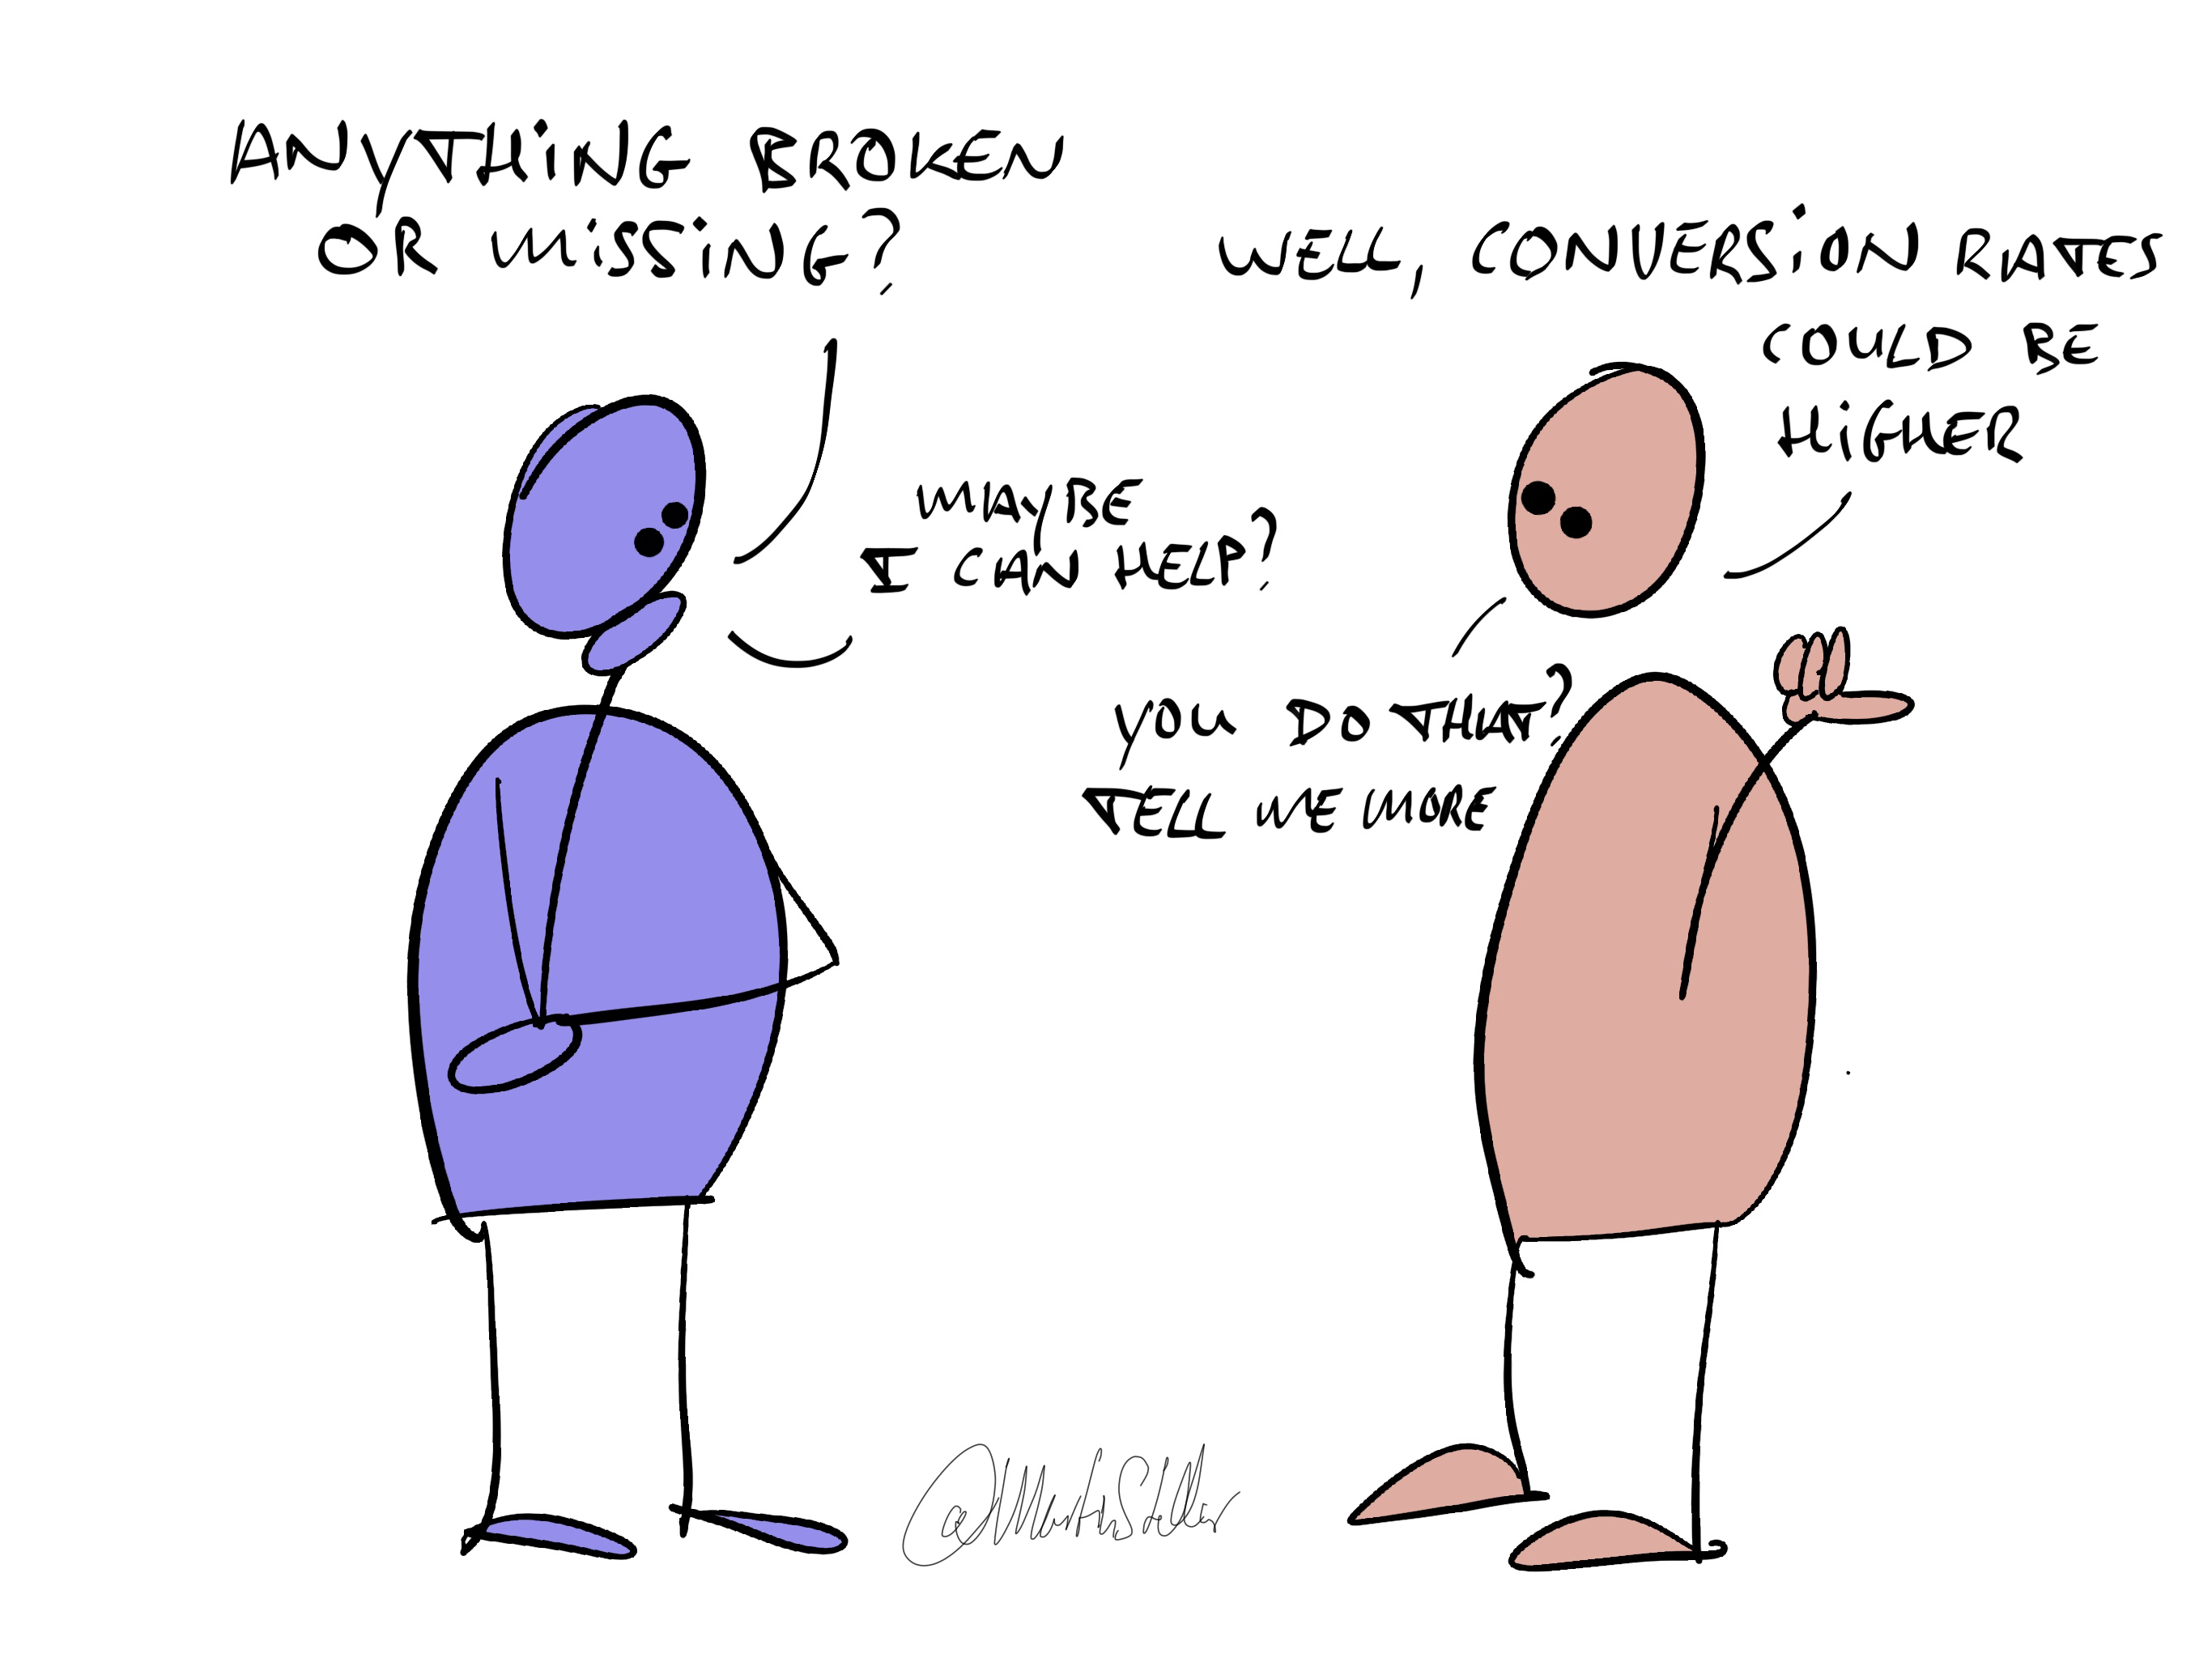 ANYTHING BROKEN
OR MISSING?
WELL, CONVERSION RATES
COULD BE
HIGHER
MAYBE
I CAN HELP?
YOU DO THAT?
TELL ME MORE
@MartinStellar